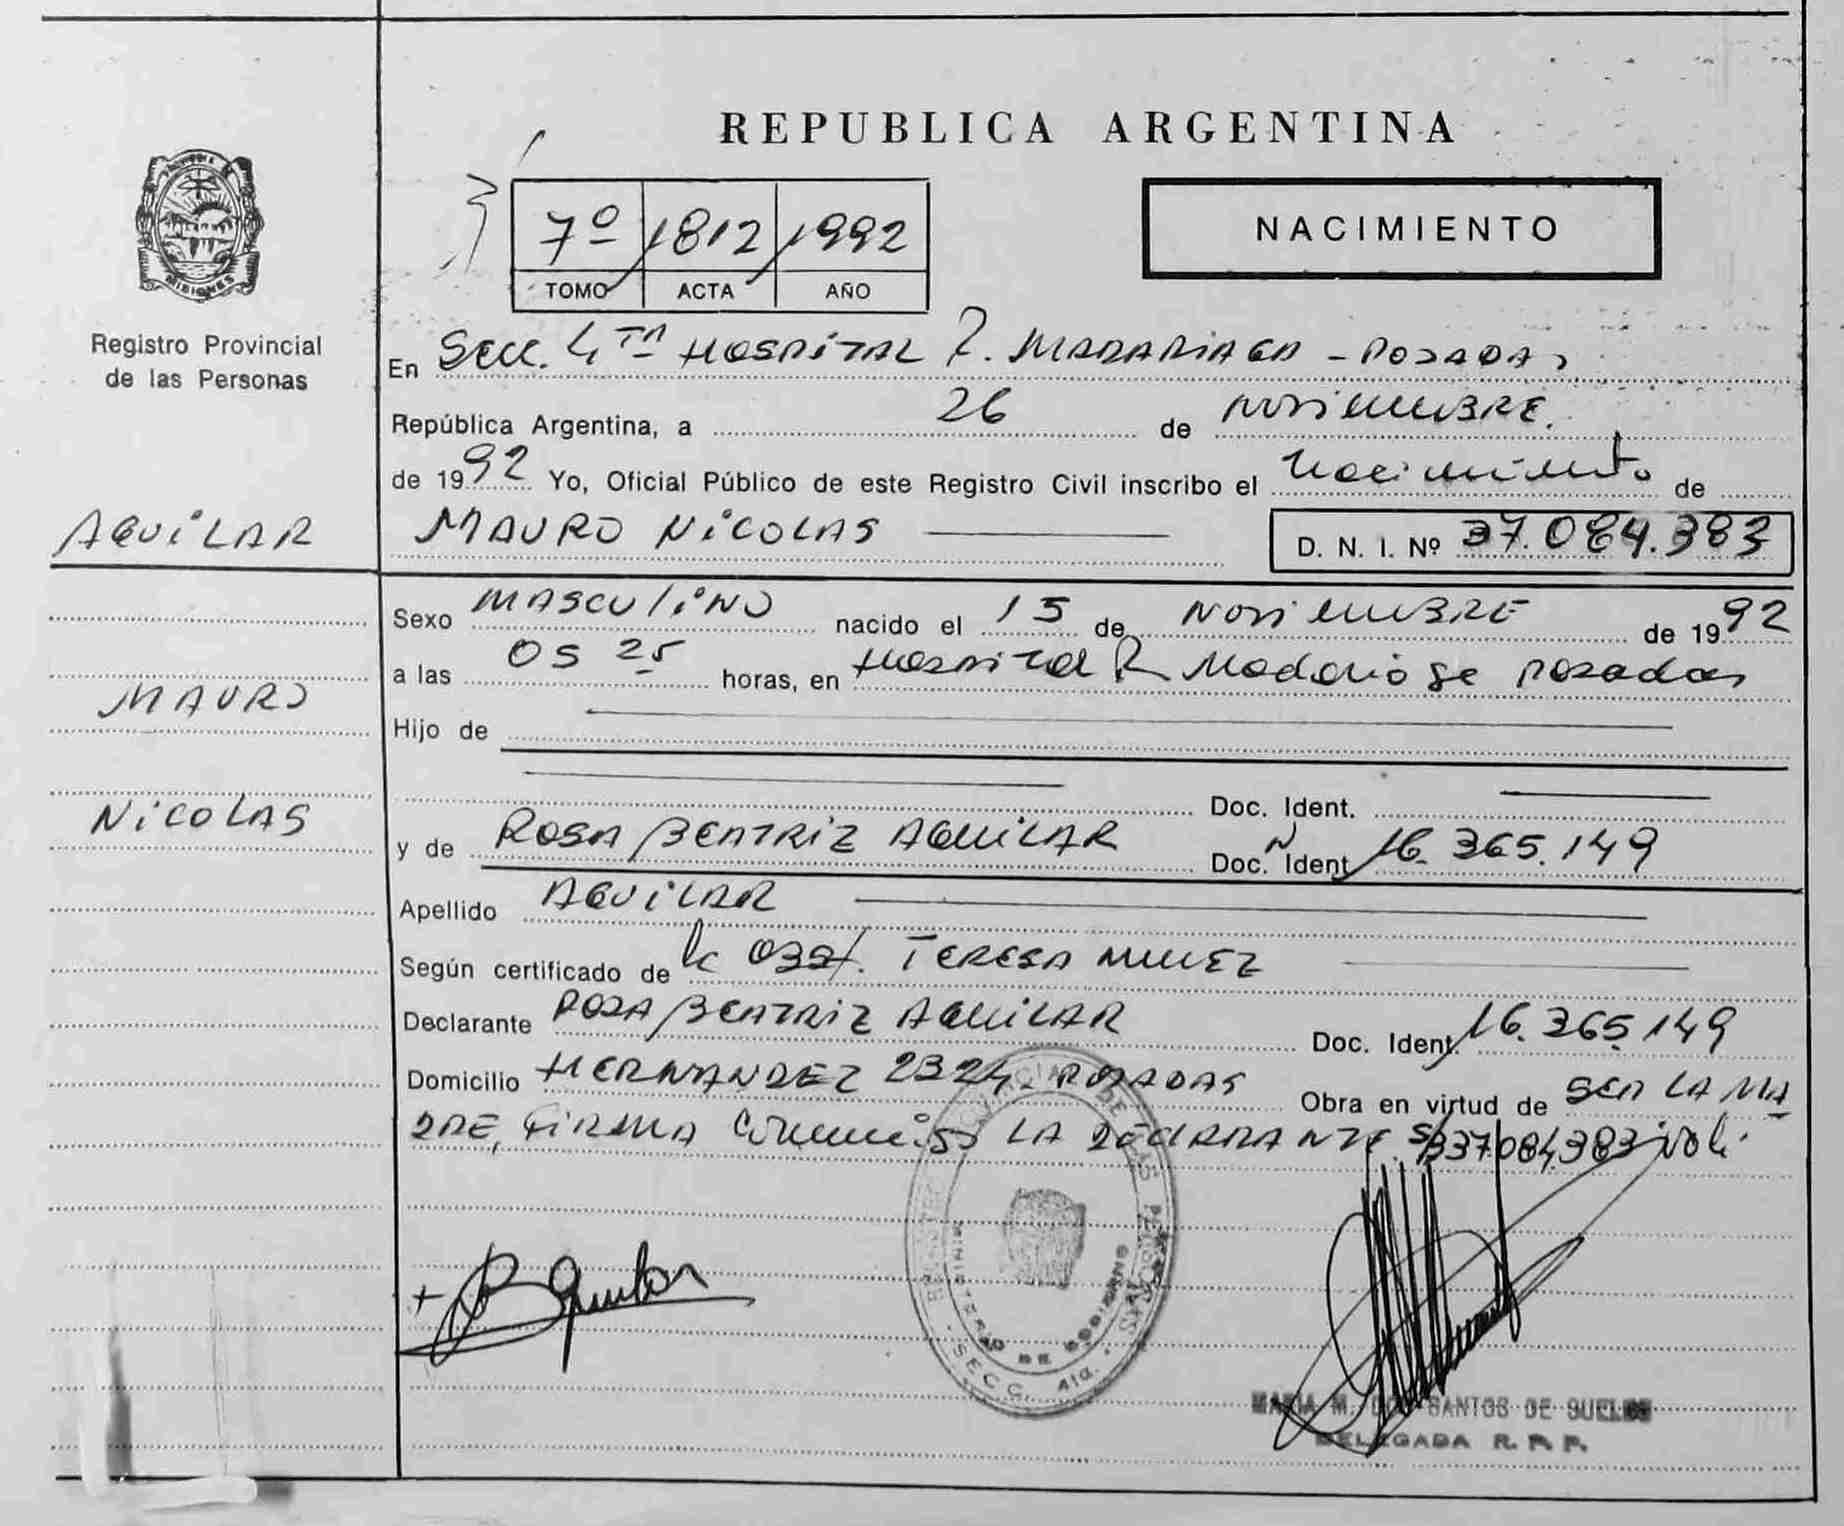 REPUBLICA ARGENTINA
MISIONES
Registro Provincial
de las Personas
7º 1812 1992
TOMO ACTA AÑO
NACIMIENTO
En Secc. 4TA HOSPITAL R. MADARIAGA - POSADAS
República Argentina, a 26 de NOVIEMBRE.
de 1992 Yo, Oficial Público de este Registro Civil inscribo el Nacimiento de
AGUILAR
MAURO NICOLAS
D. N. I. Nº 37.084.383
Sexo MASCULINO nacido el 15 de NOVIEMBRE de 1992
a las 05 25 horas, en Hospital R Madariaga Posadas
MAURO
Hijo de
Doc. Ident.
NICOLAS
y de ROSA BEATRIZ AGUILAR Doc. Ident 16.365.149
Apellido AGUILAR
Según certificado de la Obst. TERESA NUÑEZ
Declarante ROSA BEATRIZ AGUILAR Doc. Ident. 16.365.149
Domicilio HERNANDEZ 2324 - POSADAS Obra en virtud de SER LA MA
DRE, FIRMA LA DECLARANTE. S/B 37.084.383
REGISTRO PROVINCIAL DE LAS PERSONAS
MINISTERIO DE GOBIERNO
SECC. 4ta.
MARIA M. DOS SANTOS DE
DELEGADA R. P. P.